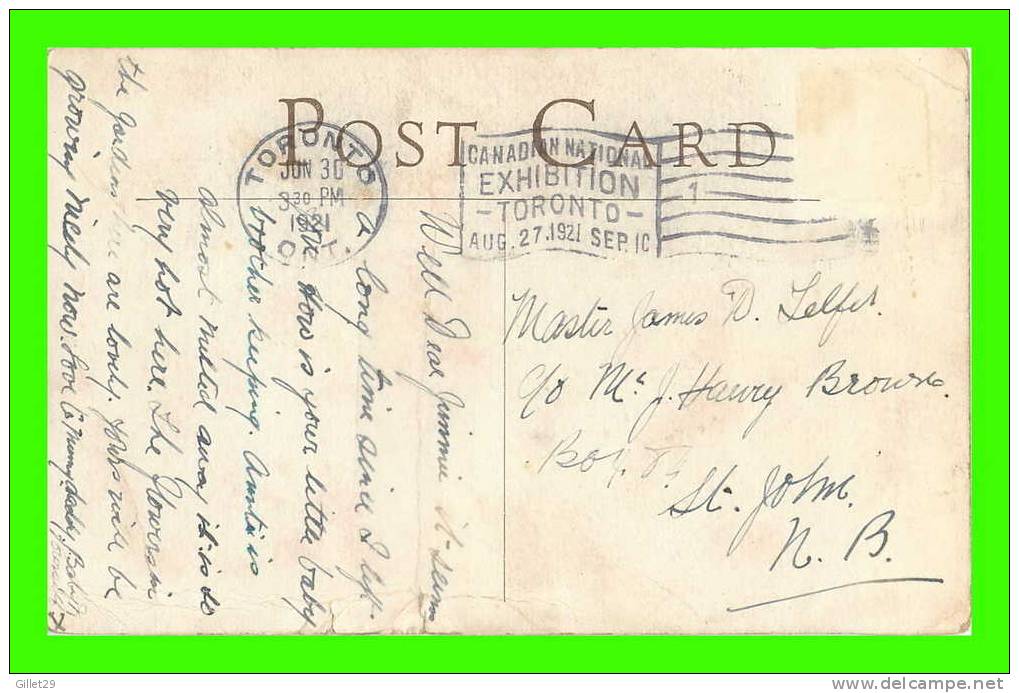 POST CARD
TORONTO
JUN 30
3 30 PM
1921
ONT.
CANADIAN NATIONAL
EXHIBITION
- TORONTO -
AUG. 27. 1921 SEP. 10
1
Well Dear Jimmie it seems
a long time since I left
you. How is your little baby
brother keeping. Auntie is
almost melted away it is so
very hot here. The flowers in
the gardens here are lovely. Yours will be
growing nicely now. Love to Mummy, Daddy,
Master James D. Telfer.
c/o Mr J. Harry Brown
Box
St. John.
N. B.
Gillet29